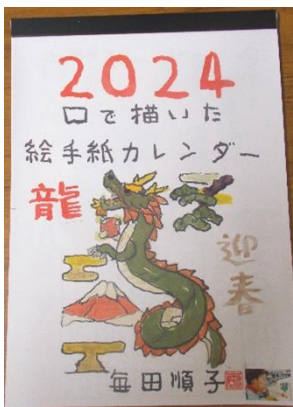 2024
口で描いた
絵手紙カレンダー
龍
迎春
毎田順子